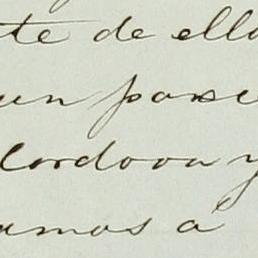 te de ell
un pase
Cordova y
amos a